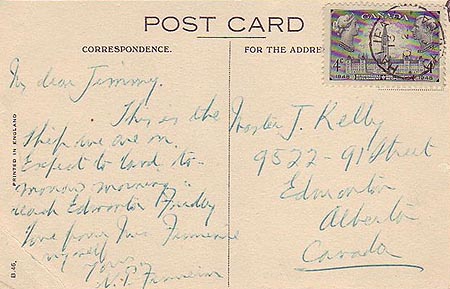 POST CARD
CORRESPONDENCE.
FOR THE ADDRESS
CANADA
4¢
4¢
1848
1948
PRINTED IN ENGLAND
B-46.
My dear Jimmy.
This is the
ship we are on.
Expect to land to-
morrow morning
reach Edmonton Friday
love from
myself
Yours
Master J. Kelly
9522-91 Street
Edmonton
Alberta
Canada